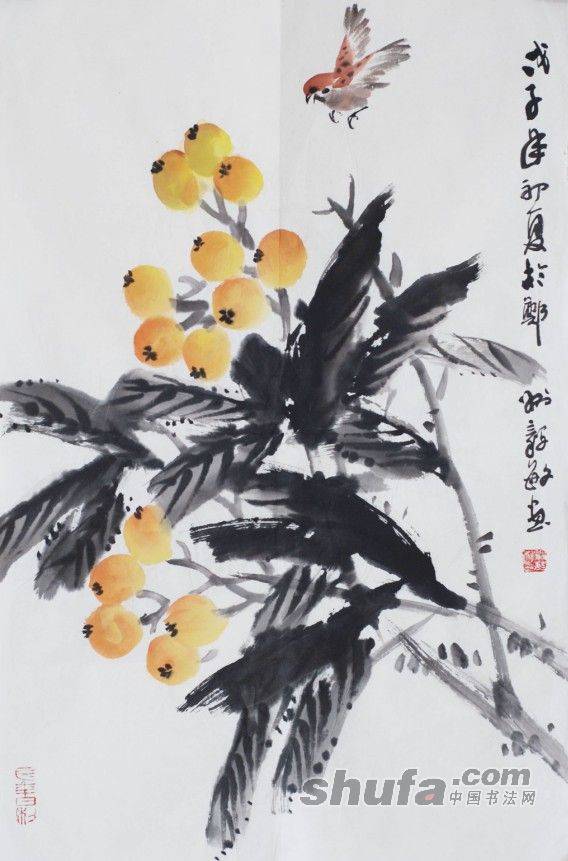 戊子年初夏於鄭州毅敏画
shufa.com
中国书法网